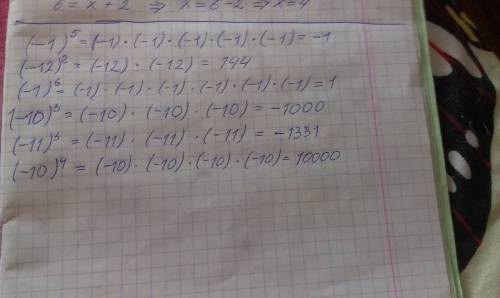 6 = x + 2 ⇒ x = 6 - 2 ⇒ x = 4
(-1)⁵ = (-1) · (-1) · (-1) · (-1) · (-1) = -1
(-12)² = (-12) · (-12) = 144
(-1)⁶ = (-1) · (-1) · (-1) · (-1) · (-1) · (-1) = 1
(-10)³ = (-10) · (-10) · (-10) = -1000
(-11)³ = (-11) · (-11) · (-11) = -1331
(-10)⁴ = (-10) · (-10) · (-10) · (-10) = 10000